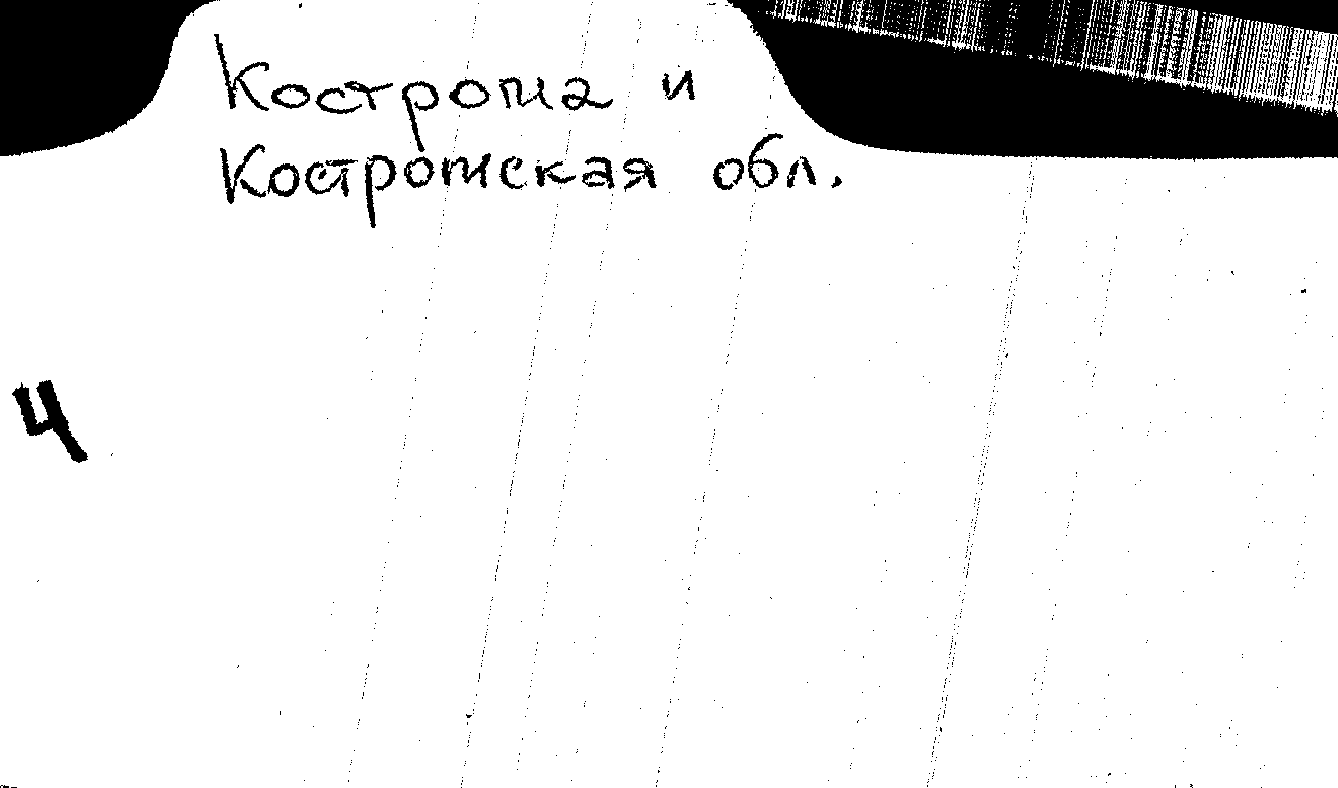 Кострома и
Костромская обл.
4